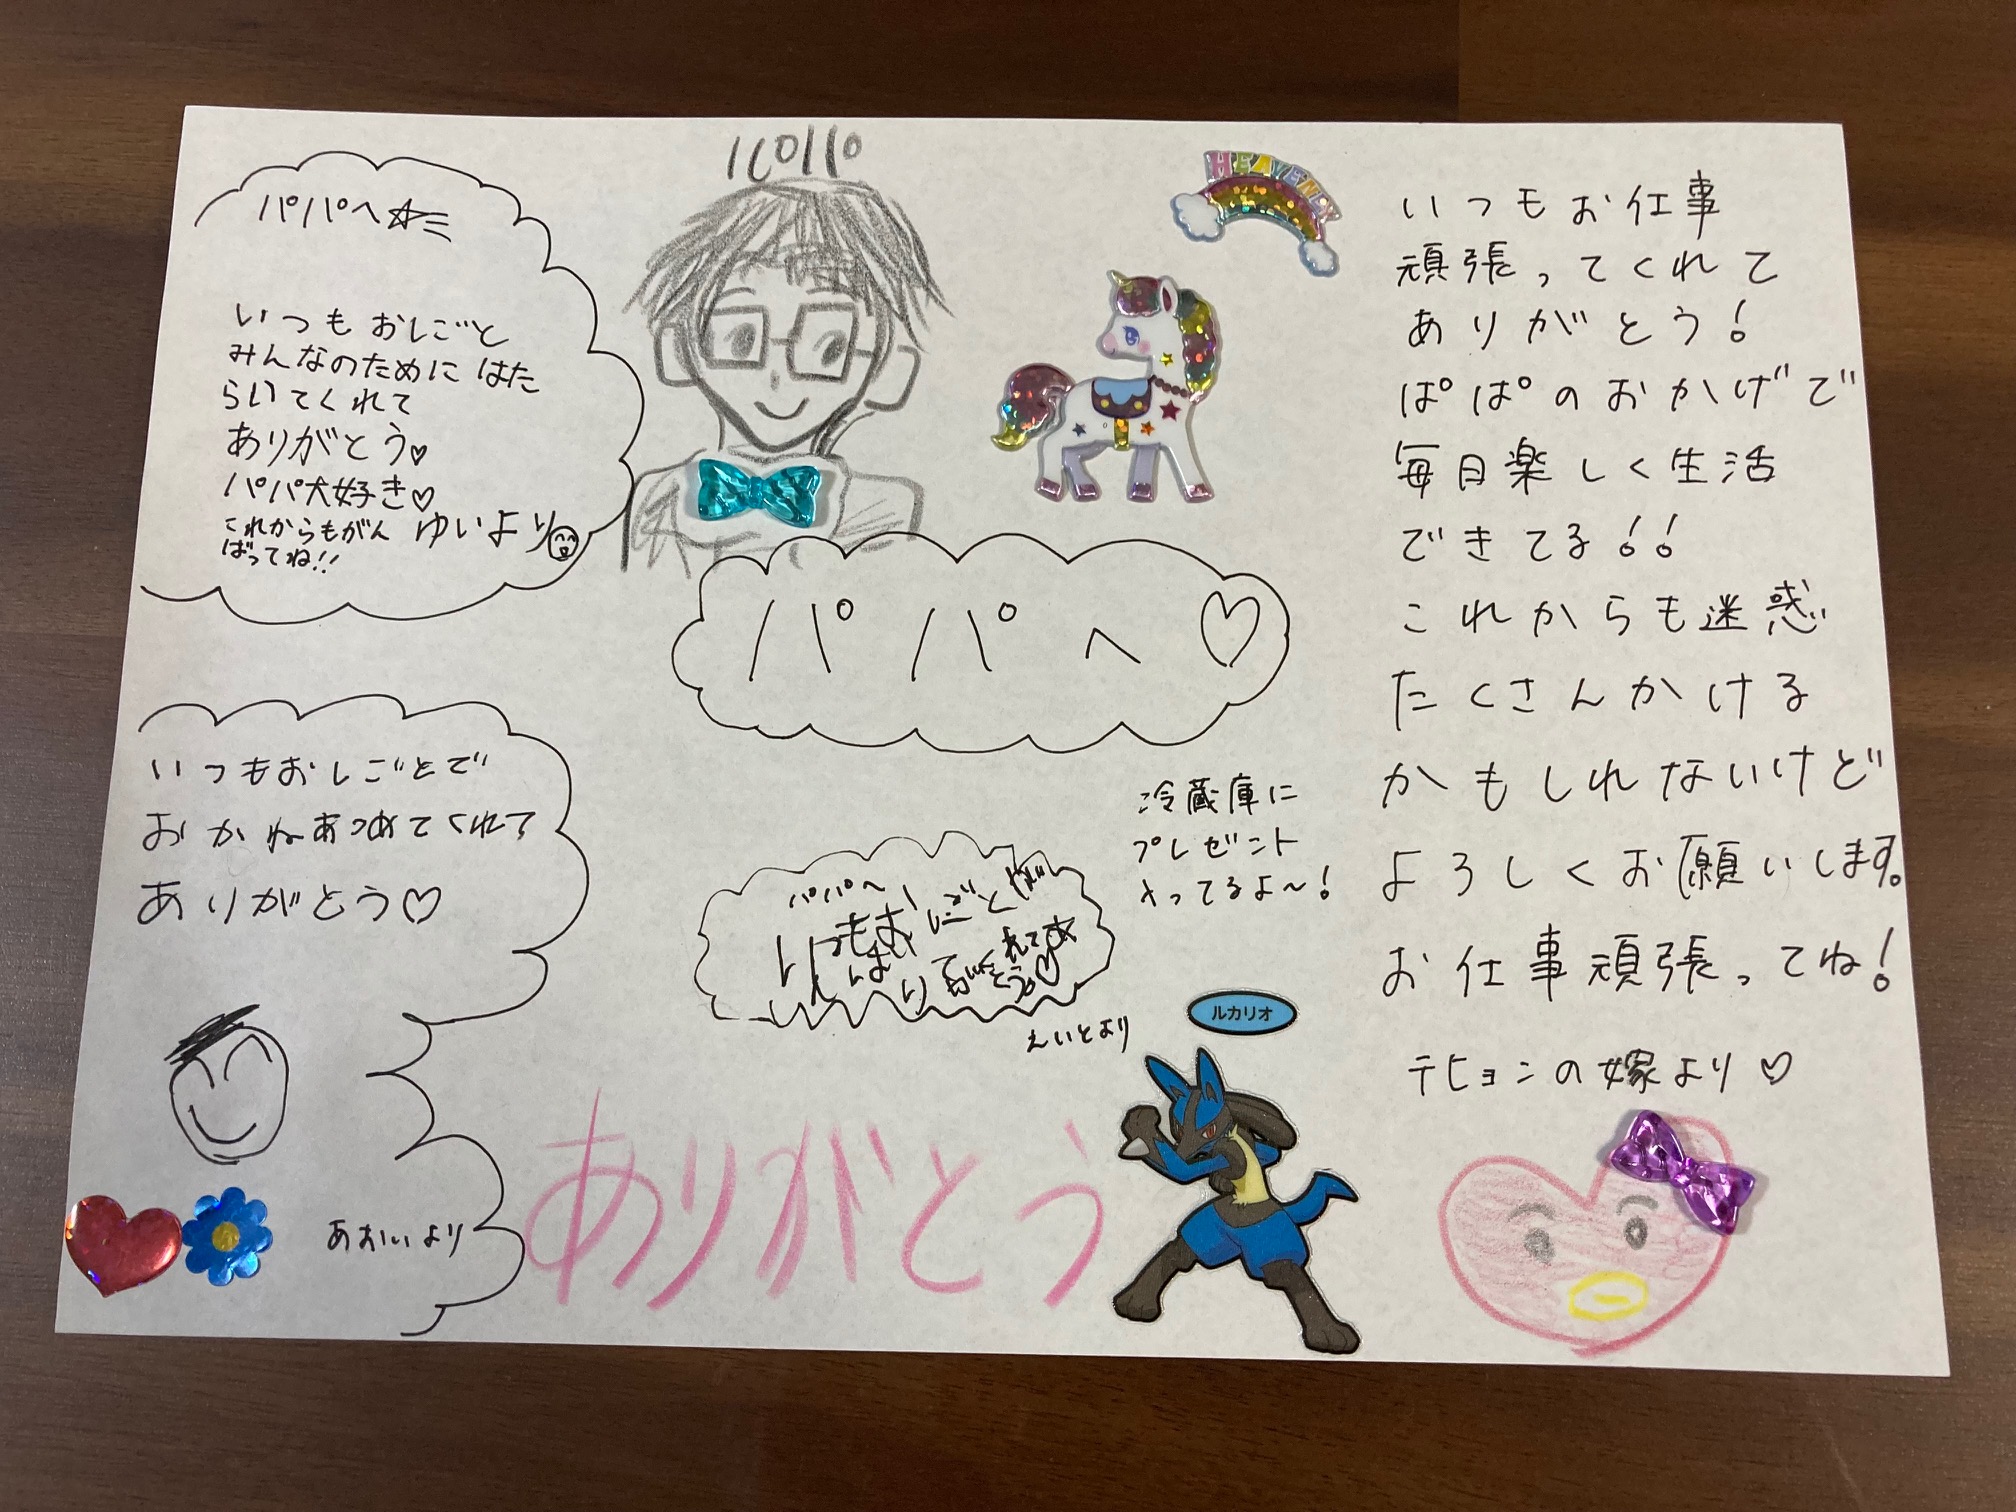 パパへ☆
いつもおしごと
みんなのために はた
らいてくれて
ありがとう♡
パパ大好き♡
これからもがん
ばってね!!
ゆいより
HEAVENLY
パパへ♡
いつもおしごとで
おかねあつめてくれて
ありがとう♡
あおいより
冷蔵庫に
プレゼント
さってるよ〜!
パパへ
いつもおしごと
えいとより
ありがとう
ルカリオ
いつもお仕事
頑張ってくれて
ありがとう!
ぱぱのおかげで
毎日楽しく生活
できてる!!
これからも迷惑
たくさんかける
かもしれないけど
よろしくお願いします。
お仕事頑張ってね!
テヒョンの嫁より♡